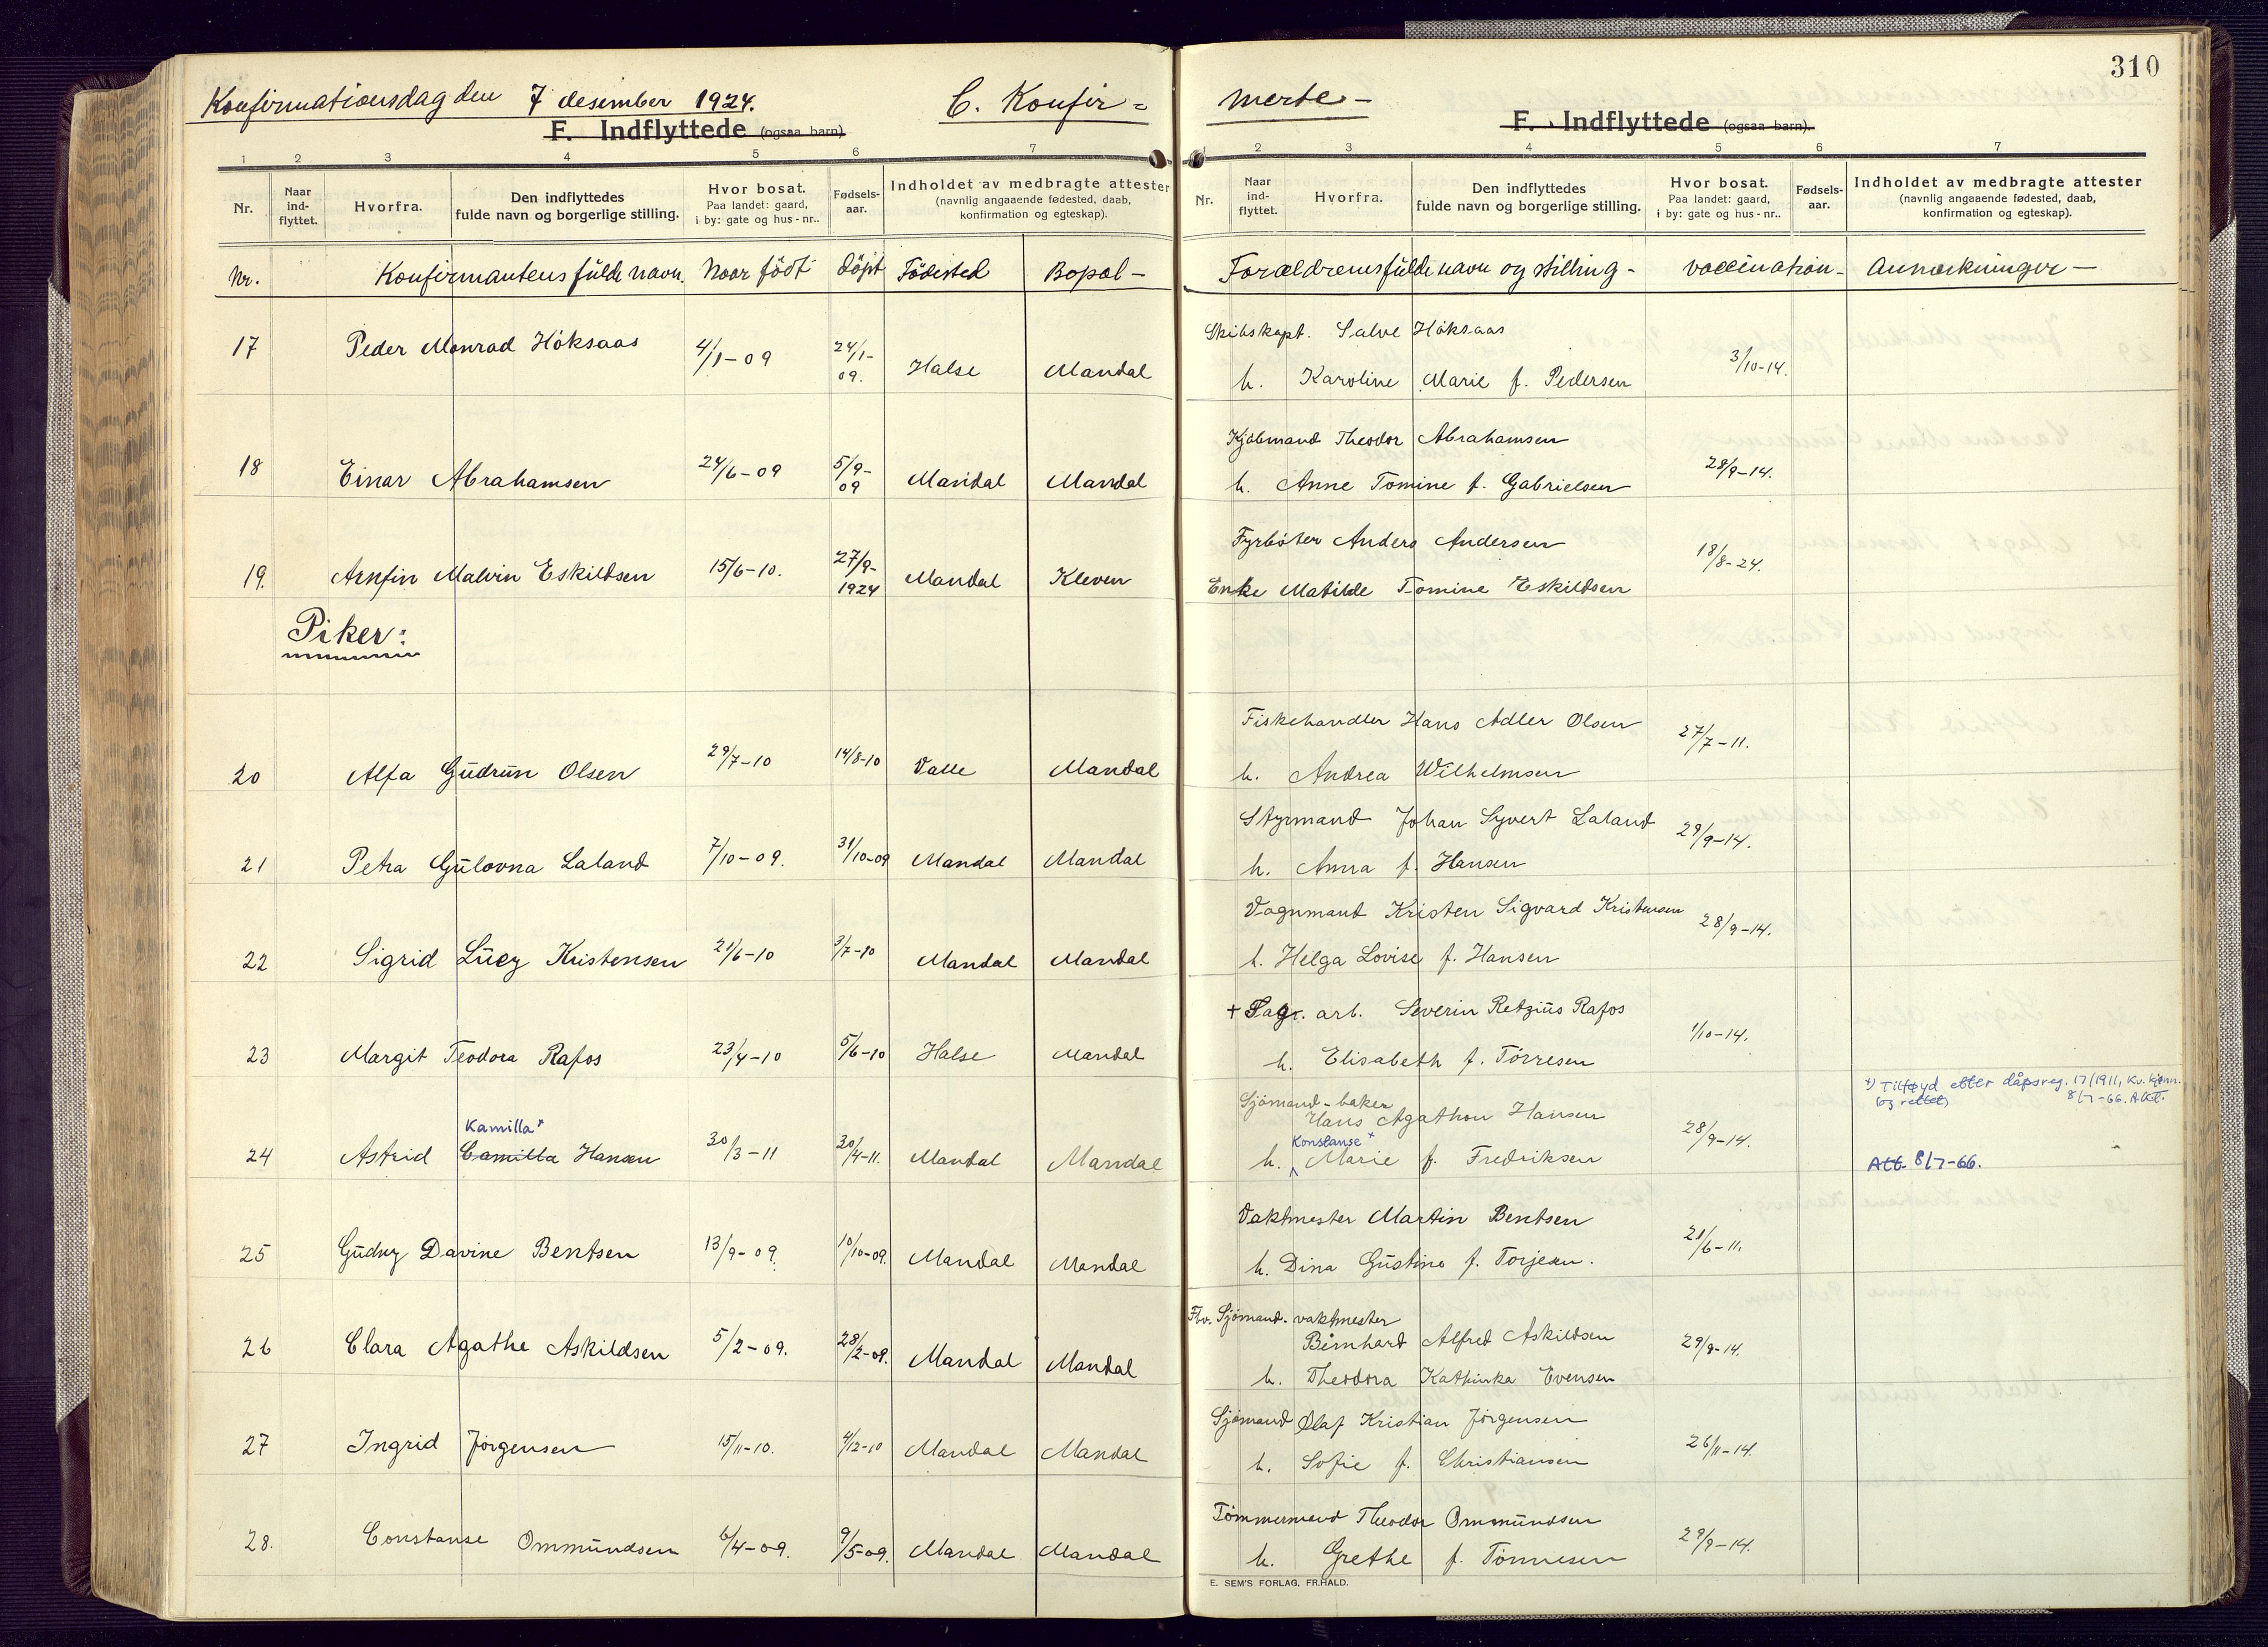 310
Konfirmationsdag den 7 desember 1924. C. Konfir= merte-
F. Indflyttede (ogsaa barn).
F. Indflyttede (ogsaa barn).
1 2 3 4 5 6 7
1 2 3 4 5 6 7
Nr. Naar ind-flyttet. Hvorfra. Den indflyttedes fulde navn og borgerlige stilling. Hvor bosat. Paa landet: gaard, i by: gate og hus-nr.. Fødsels-aar. Indholdet av medbragte attester (navnlig angaaende fødested, daab, konfirmation og egteskap).
Nr. Naar ind-flyttet. Hvorfra. Den indflyttedes fulde navn og borgerlige stilling. Hvor bosat. Paa landet: gaard, i by: gate og hus-nr.. Fødsels-aar. Indholdet av medbragte attester (navnlig angaaende fødested, daab, konfirmation og egteskap).
Nr. Konfirmantens fulde navn. Naar födt döpt Födested Bopæl- Forældrenes fulde navn og stilling- vaccination- Anmerkninger-
17 Peder Monrad Höksaas 4/1-09 24/1-09. Halse Mandal Skibskapt. Salve Höksaas
h. Karoline Marie f. Pedersen 3/10-14.
18 Einar Abrahamsen 24/6-09 5/9-09 Mandal Mandal Kjöbmand Theodor Abrahamsen
h. Anne Tomine f. Gabrielsen 28/9-14.
19. Arnfin Malvin Eskildsen 15/6-10. 27/9-1924 Mandal Kleven Fyrböter Anders Andersen
Enke Matilde Tomine Eskildsen 18/8-24.
Piker:
20 Alfa Gudrun Olsen 29/7-10 14/8-10 Valle Mandal Fiskehandler Hans Adler Olsen
h. Andrea Wilhelmsen 27/7-11.
21 Petra Gulovna Laland 7/10-09. 31/10-09 Mandal Mandal Styrmand Johan Syvert Laland
h. Anna f. Hansen 29/9-14.
22 Sigrid Lucy Kristensen 21/6-10 3/7-10 Mandal Mandal Vognmand Kristen Sigvard Kristensen
h. Helga Lovise f. Hansen 28/9-14.
23 Margit Teodora Rafos 23/4-10 5/6-10 Halse Mandal + Fagr. arb. Severin Retzius Rafos
h. Elisabeth f. Törresen 1/10-14.
+) Tilføyd etter dåpsreg. 17/1911, Kv. kjønn.
(og rettet) 8/7-66. AKT.
Kamilla+
24 Astrid Camilla Hansen 30/3-11 30/4-11. Mandal Mandal Sjömand-baker
Hans Agathon Hansen
Konstanse+
h. Marie f. Fredriksen 28/9-14.
Att. 8/7-66.
25 Gudny Davine Bentsen 13/9-09. 10/10-09. Mandal Mandal Vaktmester Martin Bentsen
h. Dina Gustine f. Torjesen. 21/6-11.
26 Clara Agathe Askildsen 5/2-09. 28/2-09. Mandal Mandal Fhv. Sjömand. vaktmester
Bernhard Alfred Askildsen
h. Theodora Kathinka Evensen 29/9-14.
27 Ingrid Jörgensen 15/11-10. 4/12-10 Mandal Mandal Sjömand Olaf Kristian Jörgensen
h. Sofie f. Christiansen 26/11-14.
28. Constanse Ommundsen 6/4-09. 9/5-09. Mandal Mandal Tömmermand Theodor Ommundsen
h. Grethe f. Tönnesen 29/9-14.
E. SEM'S FORLAG, FR.HALD.